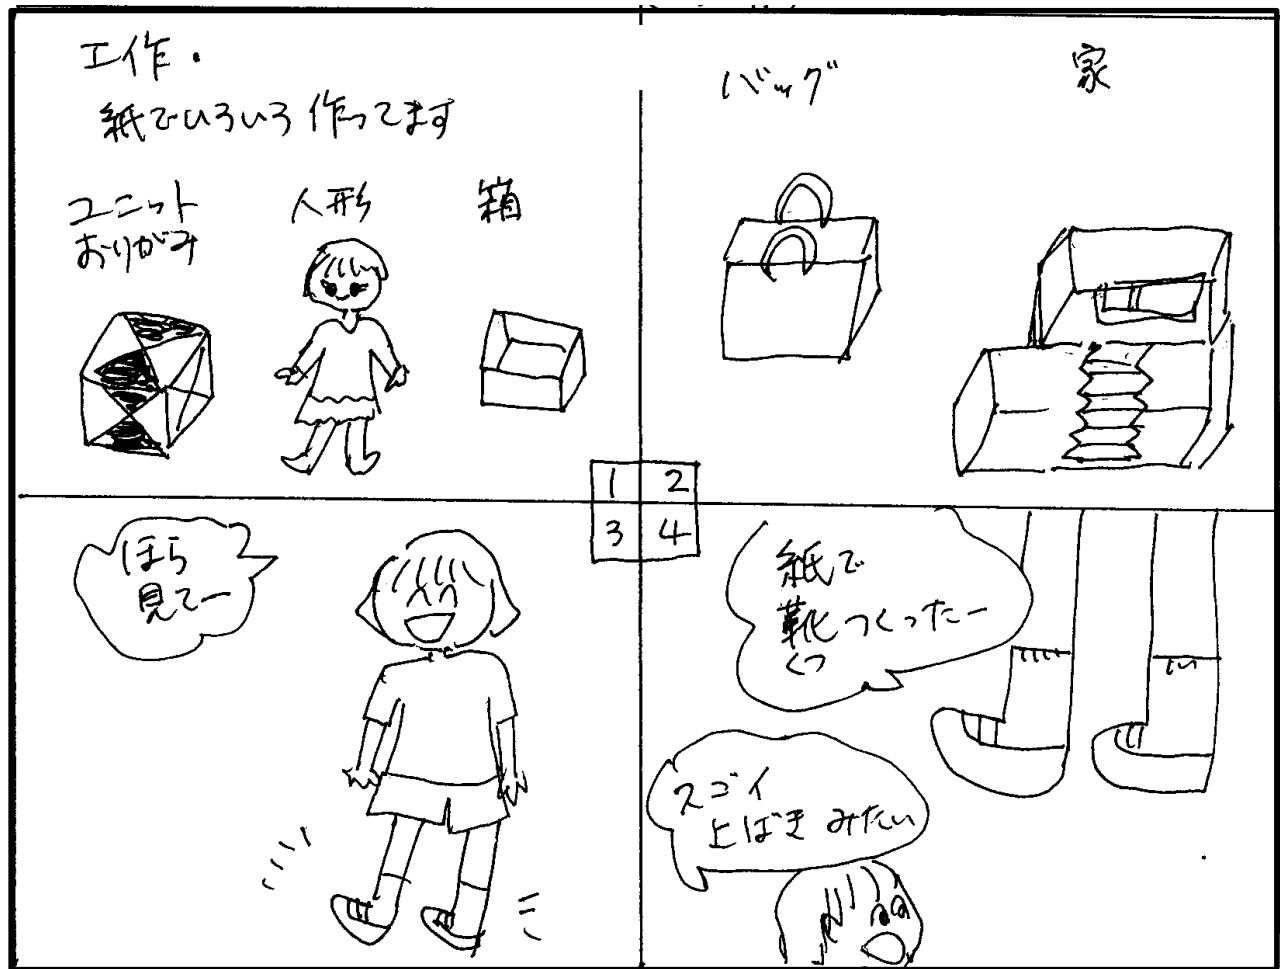 工作・
紙でいろいろ作ってます
ユニット
おりがみ
人形
箱
バッグ
家
1
2
3
4
ほら
見てー
紙で
靴つくったー
くつ
スゴイ
上ばきみたい